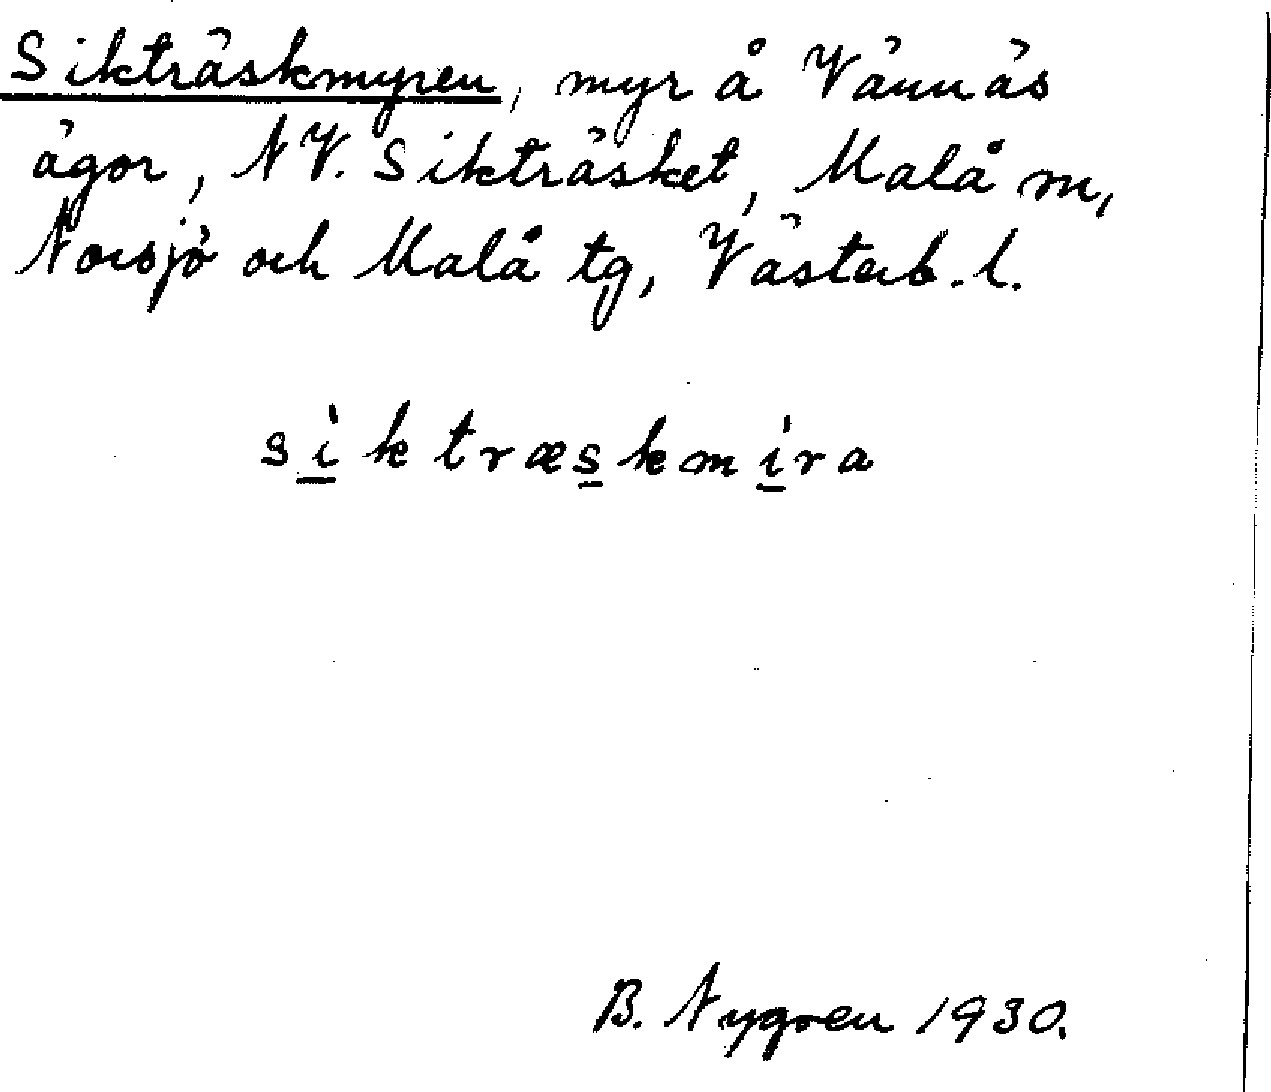 Sikträskmyren, myr å Vännäs
ägor, NV. Sikträsket, Malå m,
Norsjö och Malå tg, Västerb. l.
siktræskmira
B. Nygren 1930.